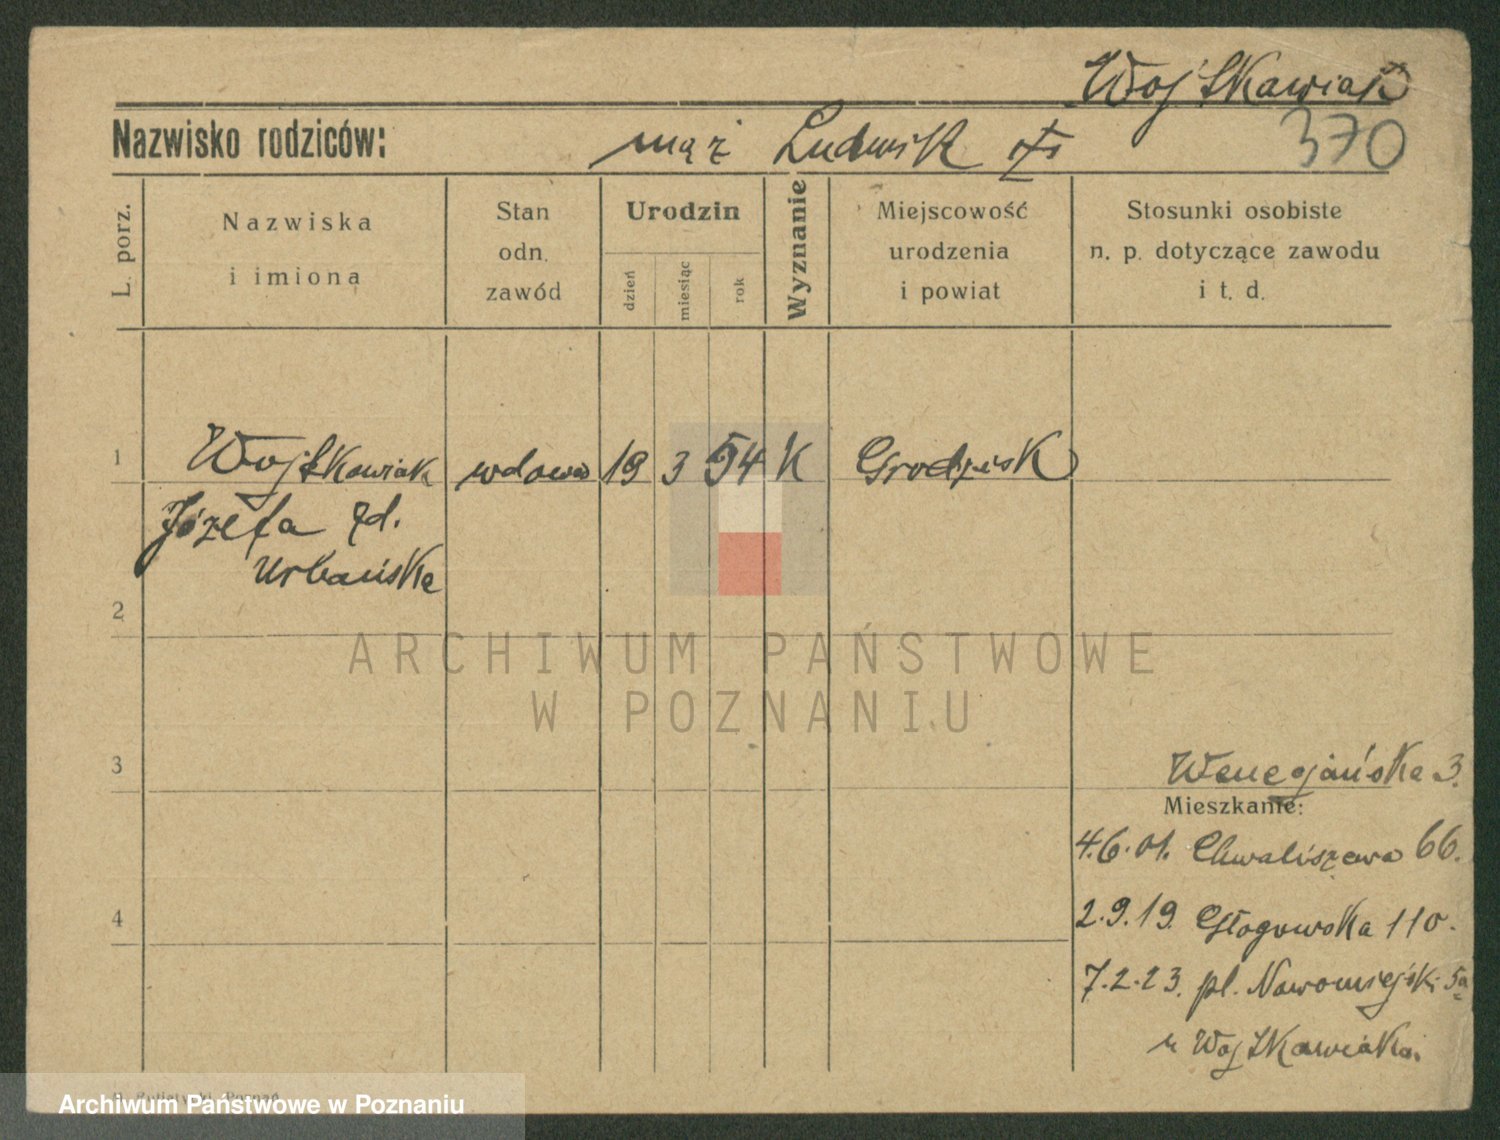 Wojtkowiak
Nazwisko rodziców: mąż Ludwik
370
L. porz.
Nazwiska
i imiona
Stan
odn.
zawód
Urodzin
dzień
miesiąc
rok
Wyznanie
Miejscowość
urodzenia
i powiat
Stosunki osobiste
n. p. dotyczące zawodu
i t. d.
1 Wojtkowiak wdowa 19 3 54 K Grodzisk
Józefa zd.
Urbańska
2
ARCHIWUM PAŃSTWOWE
W POZNANIU
3
Wenecjańska 3.
Mieszkanie:
4.6.01. Chwaliszewo 66.
4
2.9.19. Głogowska 110.
7.2.23. pl. Nowomiejski 5a
u Wojtkowiaka
Archiwum Państwowe w Poznaniu